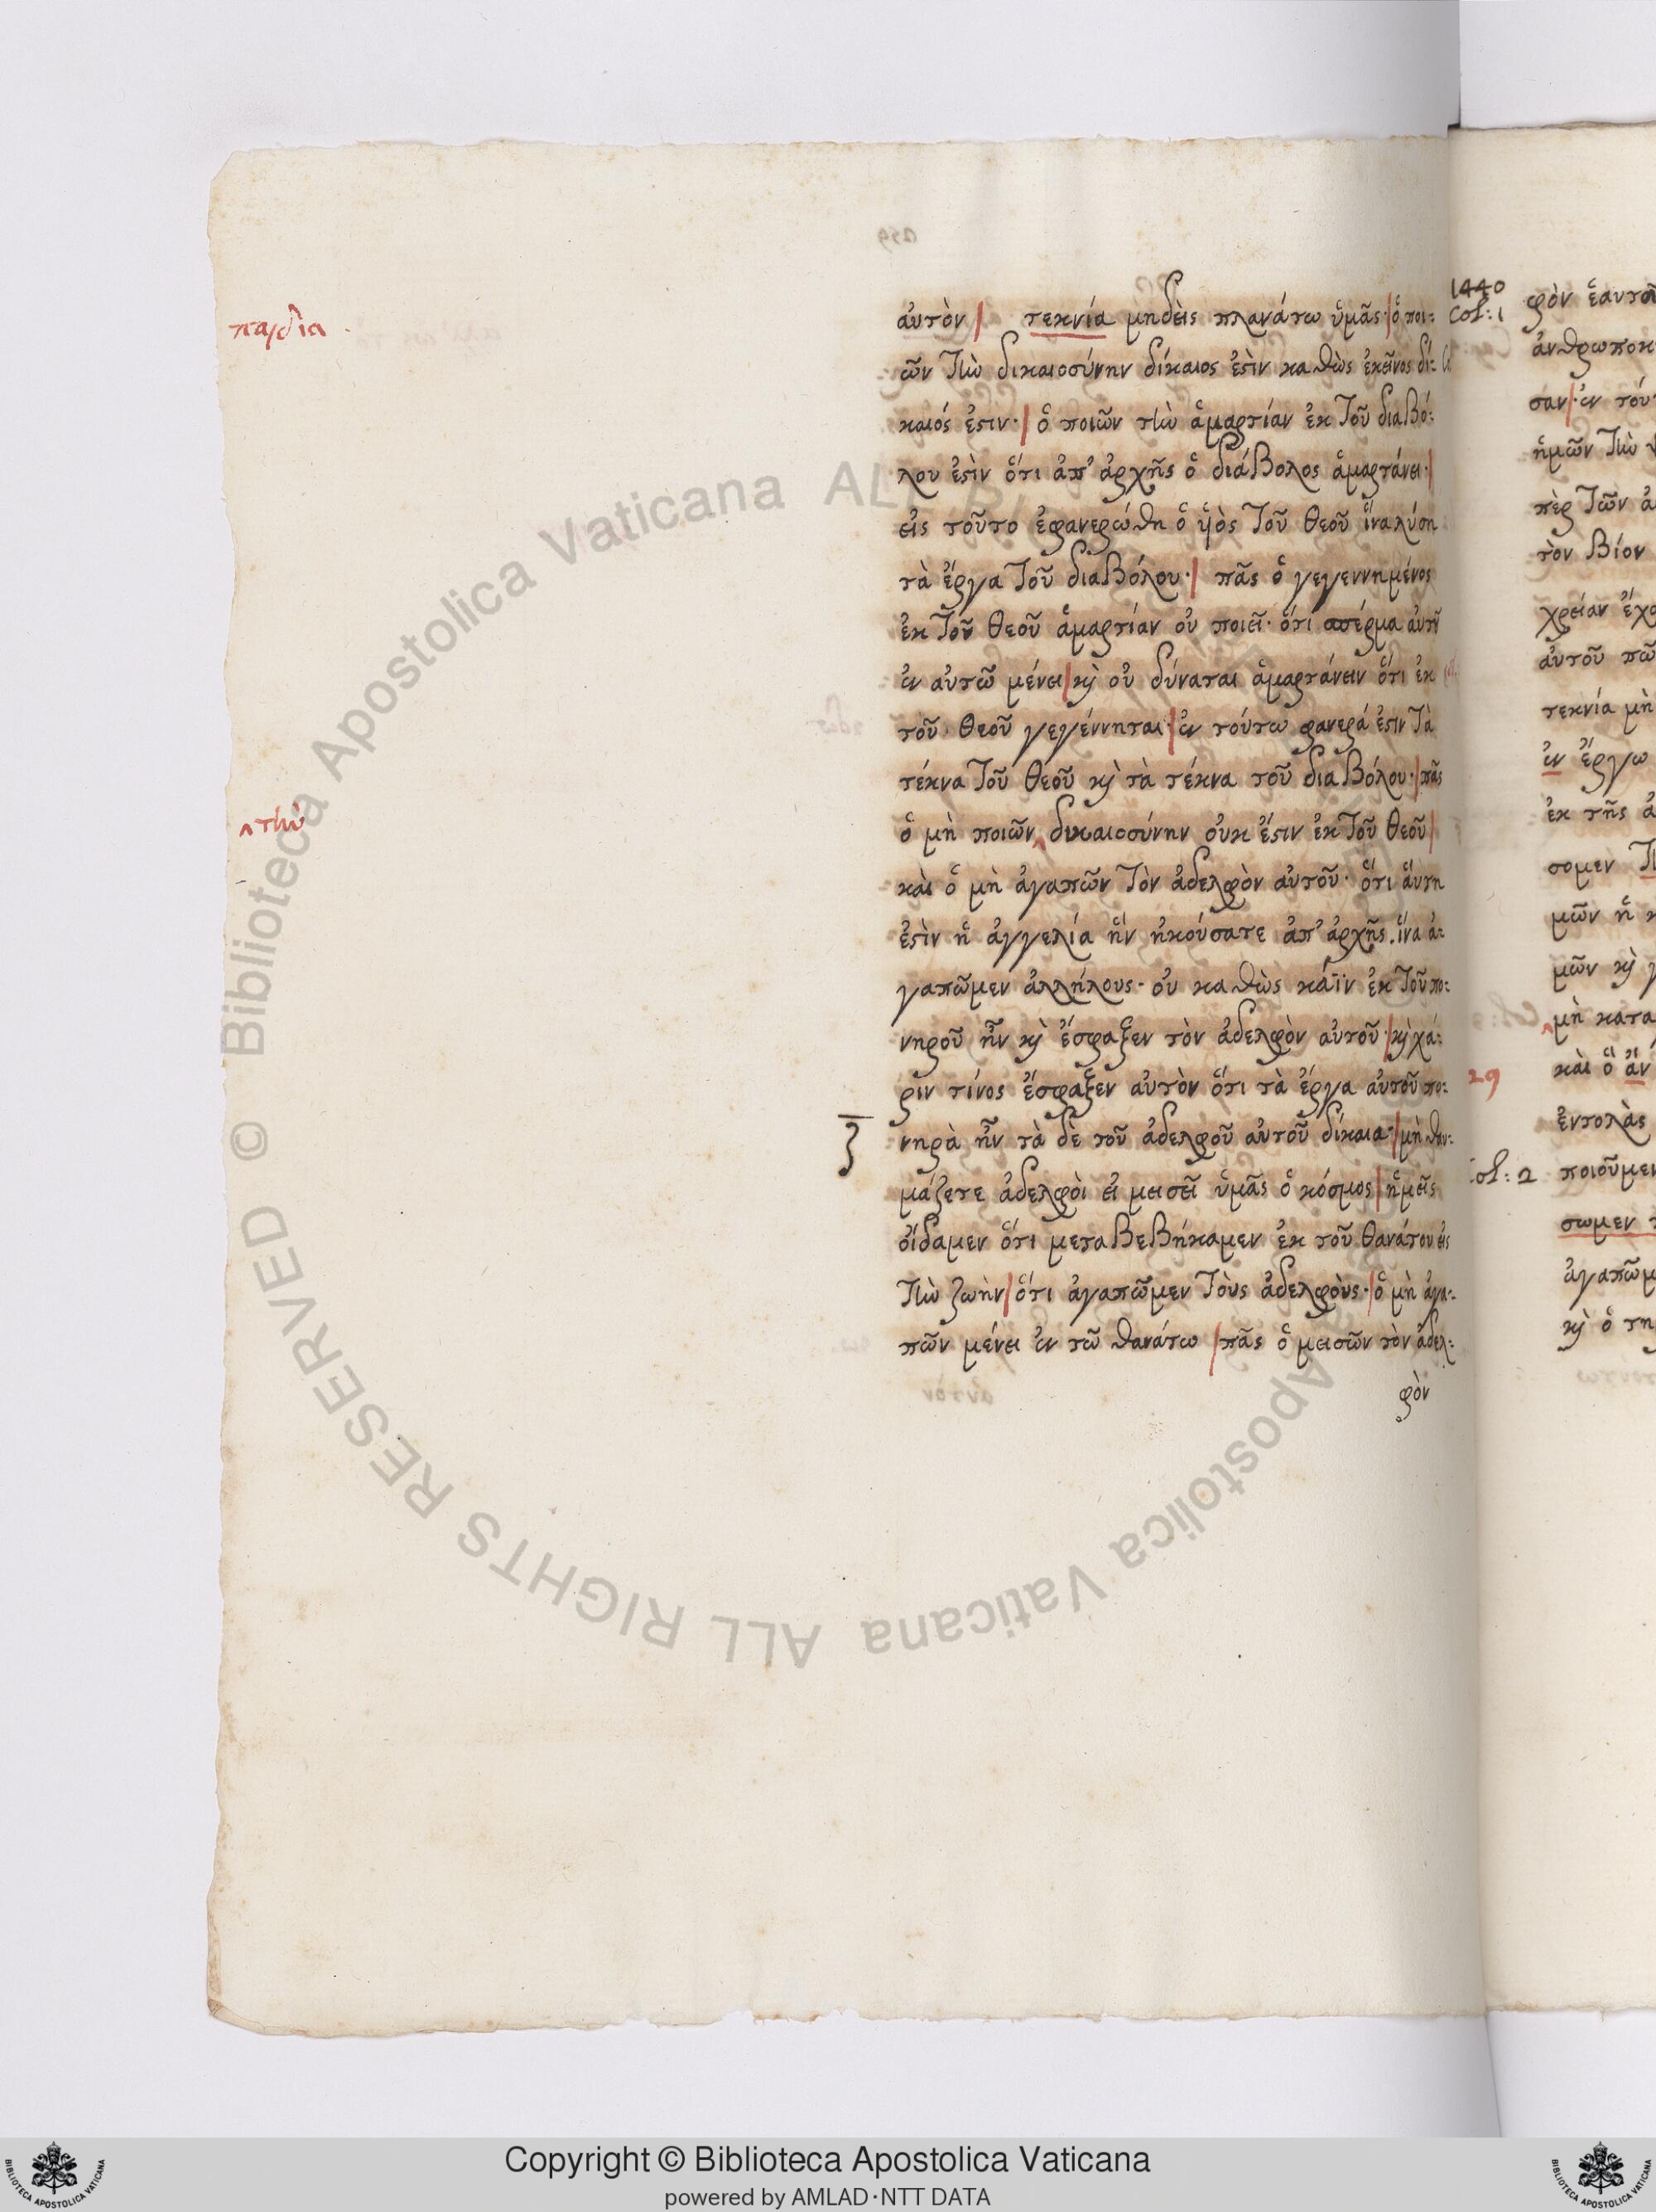 αὐτὸν τεκνία μηδεὶς πλανάτω ὑμᾶς· ὁ ποι-
παιδία
1440
Col: 1
ῶν τὴν δικαιοσύνην δίκαιος ἐστὶν καθὼς ἐκεῖνος δί-
καιός ἐστιν· ὁ ποιῶν τὴν ἁμαρτίαν ἐκ τοῦ διαβό-
λου ἐστὶν ὅτι ἀπ' ἀρχῆς ὁ διάβολος ἁμαρτάνει·
εἰς τοῦτο ἐφανερώθη ὁ υἱὸς τοῦ θεοῦ ἵνα λύση
τὰ ἔργα τοῦ διαβόλου· πᾶς ὁ γεγεννημένος
ἐκ τοῦ θεοῦ ἁμαρτίαν οὐ ποιεῖ· ὅτι σπέρμα αὐτοῦ
ἐν αὐτῶ μένει καὶ οὐ δύναται ἁμαρτάνειν ὅτι ἐκ
τοῦ θεοῦ γεγέννηται· ἐν τούτω φανερά ἐστιν τὰ
τέκνα τοῦ θεοῦ καὶ τὰ τέκνα τοῦ διαβόλου· πᾶς
ὁ μὴ ποιῶν ‸ δικαιοσύνην οὐκ ἔστιν ἐκ τοῦ θεοῦ
‸ τὴν
καὶ ὁ μὴ ἀγαπῶν τὸν ἀδελφὸν αὐτοῦ· ὅτι αὕτη
ἐστὶν ἡ ἀγγελία ἣν ἠκούσατε ἀπ' ἀρχῆς. ἵνα ἀ-
γαπῶμεν ἀλλήλους· οὐ καθὼς κάϊν ἐκ τοῦ πο-
νηροῦ ἦν καὶ ἔσφαξεν τὸν ἀδελφὸν αὐτοῦ· καὶ χά-
ριν τίνος ἔσφαξεν αὐτὸν ὅτι τὰ ἔργα αὐτοῦ πο-
νηρὰ ἦν τὰ δὲ τοῦ ἀδελφοῦ αὐτοῦ δίκαια· μὴ θαυ-
μάζετε ἀδελφοὶ εἰ μεισεῖ ὑμᾶς ὁ κόσμος ἡμεῖς
οἴδαμεν ὅτι μεταβεβήκαμεν ἐκ τοῦ θανάτου εἰς
τὴν ζωὴν ὅτι ἀγαπῶμεν τοὺς ἀδελφοὺς· ὁ μὴ ἀγα-
πῶν μένει ἐν τῶ θανάτω πᾶς ὁ μεισῶν τὸν ἀδελ-
φὸν
φὸν ἑαυτοῦ
σαν· ἐν τού
ἡμῶν τὴν
πὲρ τῶν ἀ
τὸν βίον
χρείαν ἔχο
αὐτοῦ πῶ
τεκνία μὴ
ἐν ἔργω
ἐκ τῆς ἀ
σομεν
μῶν ἡ κ
μῶν καὶ
μὴ κατα
29
καὶ ὃ ἂν
ἐντολὰς
Col: 2
ποιοῦμεν
σωμεν
ἀγαπῶμ
καὶ ὁ τη
Copyright © Biblioteca Apostolica Vaticana
powered by AMLAD·NTT DATA
© Biblioteca Apostolica Vaticana ALL RIGHTS RESERVED
BIBLIOTECA APOSTOLICA VATICANA
BIBLIOTECA APOSTOLICA VATICANA